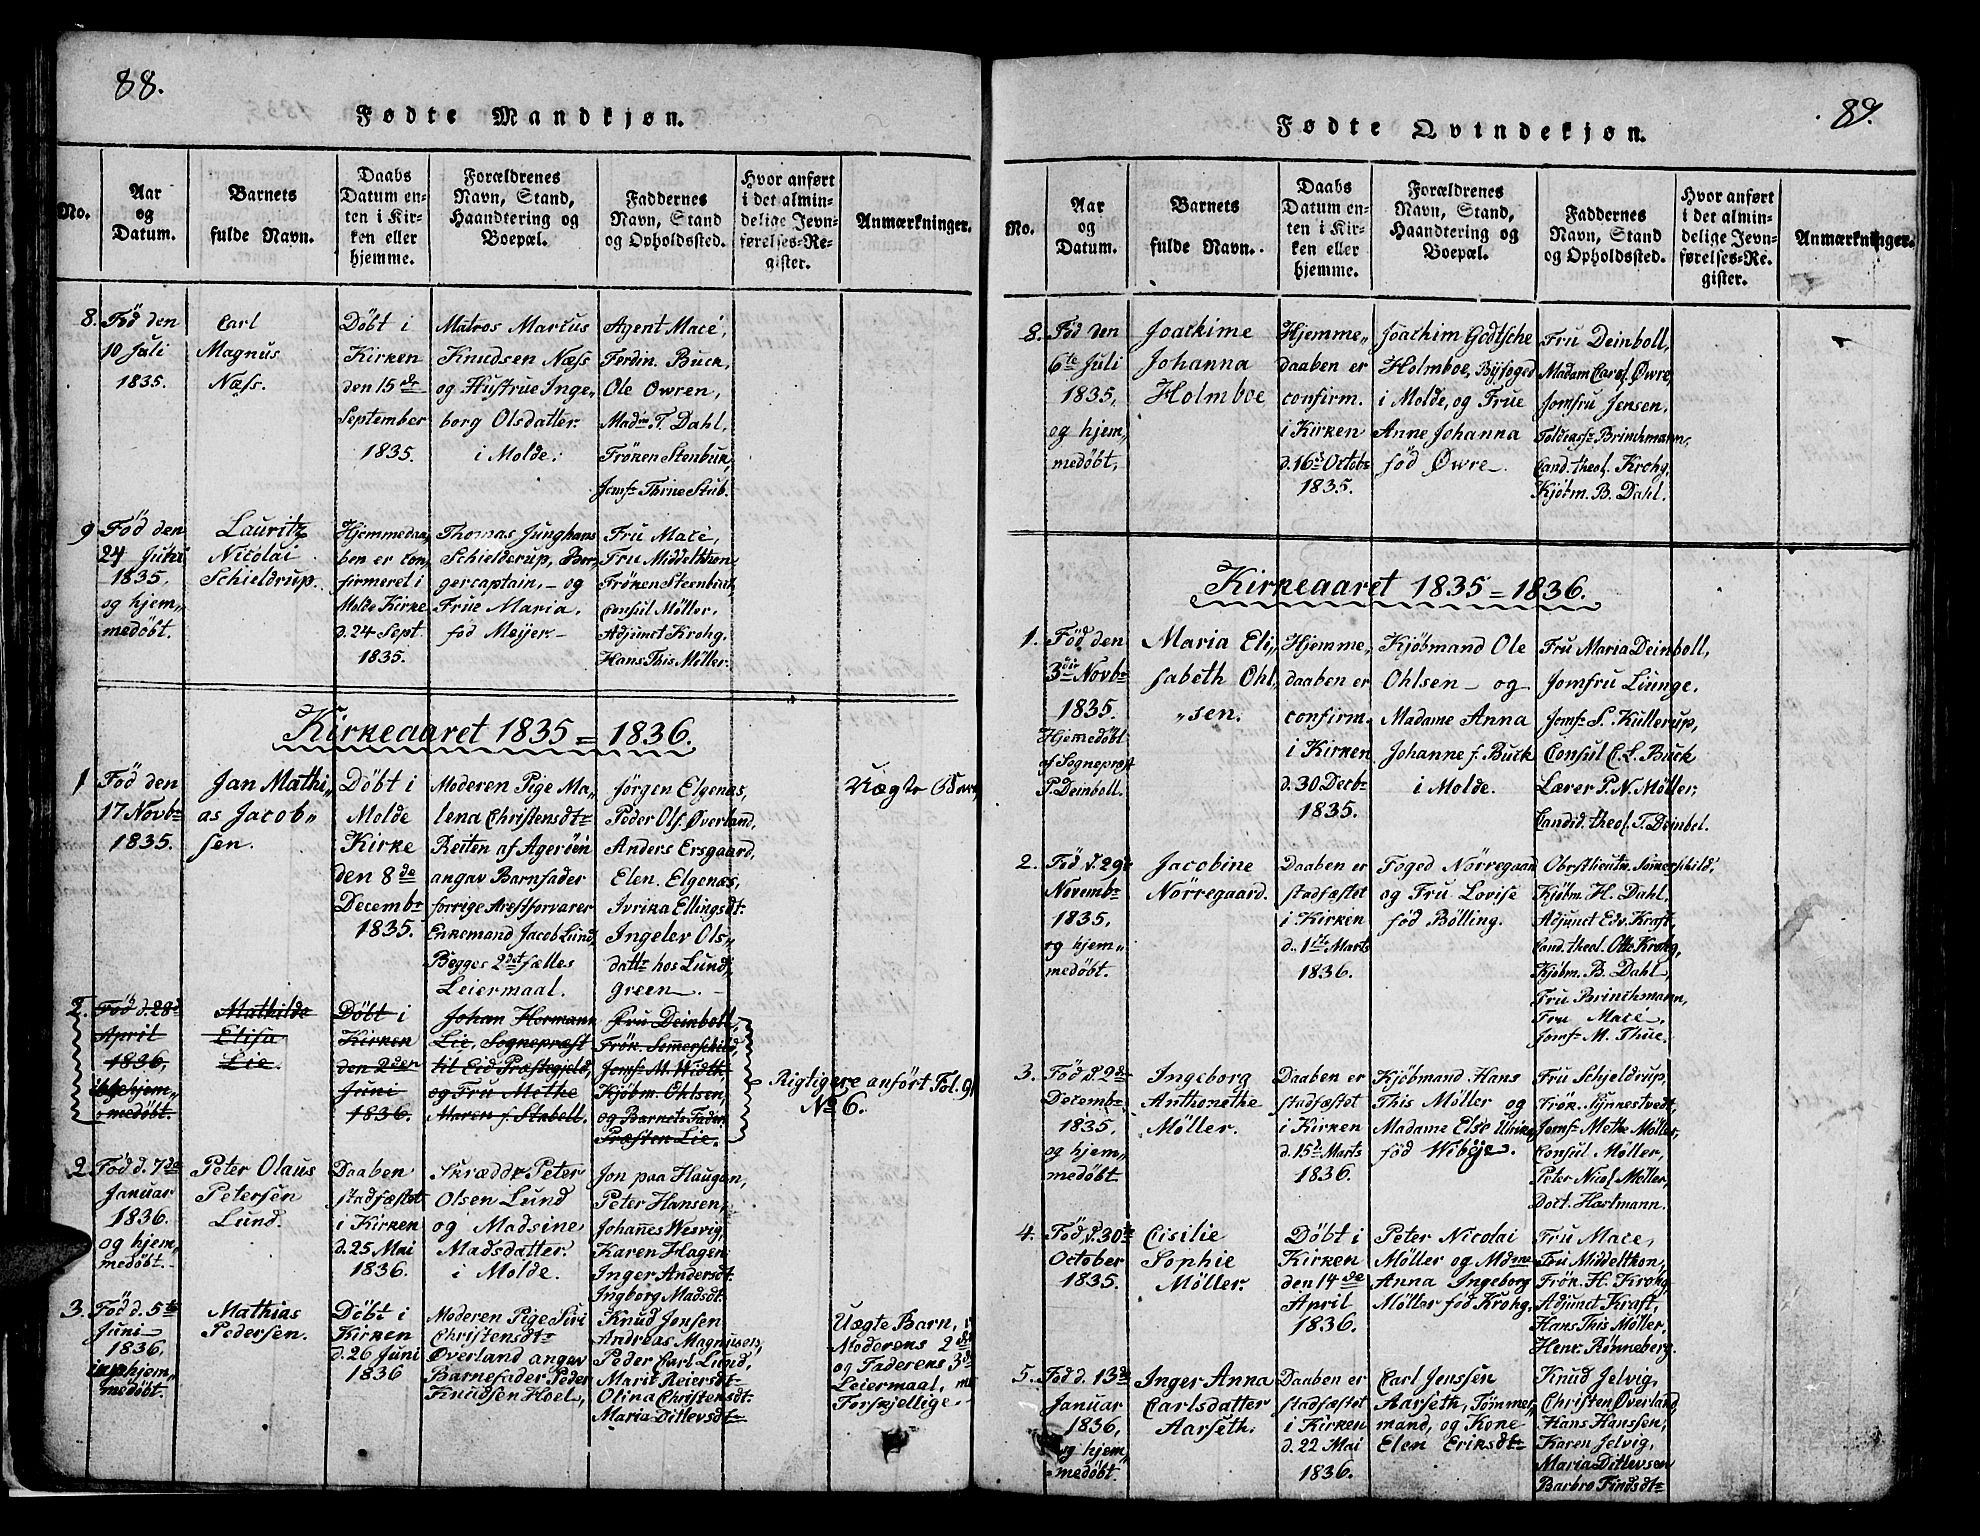 88.
Fødte Mandkjøn.
No.
Aar
og
Datum.
Barnets
fulde Navn.
Daabs
Datum en-
ten i Kir-
ken eller
hjemme.
Forældrenes
Navn, Stand,
Haandtering og
Boepæl.
Faddernes
Navn, Stand
og Opholdssted.
Hvor anført
i det almin-
delige Jevn-
førelses-Re-
gister.
Anmærkninger.
8.
Fød den
10 Juli
1835.
Carl
Magnus
Næss.
Döbt i
Kirken
den 15de
September
1835.
Matros Marcus
Knudsen Næss
og Hustrue Inge„
borg Olsdatter
i Molde.
Agent Macé,
Ferdin. Buck,
Ole Owren,
Madm T. Dahl,
Fröken Stenbuk,
Jomfr Thrine Stub.
9
Fød den
24 Juni
1835,
og hjem„
medøbt.
Lauritz
Nicolai
Schieldrup.
Hjemmedaa„
ben er con„
firmeret i
Molde Kirke
d. 24 Sept.
1835.
Thomas Junghans
Schielderup, Bor„
gercaptain, – og
Frue Maria,
fød Meijer –
Fru Macé,
Fru Middelthon,
Frøken Steenbuk,
Consul Møller,
Adjunct Krohg.
Hans This Møller.
Kirkeaaret 1835 = 1836.
1
Fød den
17 Novbr
1835.
Jan Mathi„
as Jacob„
sen.
Döbt i
Molde
Kirke
den 8de
Decembr
1835.
Moderen Pige Ma„
lena Christensdtr
Reiten af Agerøen
angav Barnfader
forrige Arestforvarer
Ennemand Jacob Lund,
Begges 2det fælles
Leiermaal.
Jørgen Elgenæs,
Peder Ols. Øverland,
Anders Ersgaard,
Elen. Elgenæs,
Ivrika Ellingsdt.
Ingeler Ols„
dattr hos Lund„
green.
Uægte
2.
Fød d. 28de
April
1836,
ikke hjem„
medøbt.
Mathilde
Elisa
Lie.
Døbt i
Kirken
den 2den
Juni
1836.
Johan Hermann
Lie, Sognepræst
til Eid Præstegjeld,
og Fru Methe
Maren f. Stabell.
Fru Deinboll,
Frøk. Sommerschild,
Jomfr M. Width,
Kjöbm. Ohlsen,
og Barnets Fader
Præsten Lie.
Rigtigere anført Fol. 91
No 6.
2.
Fød d. 7de
Januar
1836.
og hjem„
medøbt.
Peter Olaus
Petersen
Lund.
Daaben
stadfæstet
i Kirken
d. 25 Mai
1836.
Skrædder Peter
Olsen Lund
og Madsine
Madsdatter
i Molde.
Jon paa Haugen,
Peter Hansen,
Johañes Wesvig,
Karen Hagen
Inger Andersdt.
Ingborg Madsdt.
3.
Fød d. 5te
Juni
1836,
ikke hjem„
medøbt.
Mathias
Pedersen.
Döbt i
Kirken
d. 26 Juni
1836
Moderen Pige Siri
Christensdtr
Øverland angav
Barnefader Peder
Knudsen Hoel,
Knud Jonsen
Andreas Magnusen,
Peder Carl Lund,
Marit Reiersdtr
Olina Christensdt.
Maria Ditlevsdtr
Uægte Barn,
Moderens 2det
og Faderens 3die
Leiermaal,
Forskjellige.
89.
Fødte Qvindekjøn.
No.
Aar
og
Datum.
Barnets
fulde Navn.
Daabs
Datum en-
ten i Kir-
ken eller
hjemme.
Forældrenes
Navn, Stand,
Haandtering og
Boepæl.
Faddernes
Navn, Stand
og Opholdssted.
Hvor anført
i det almin-
delige Jevn-
førelses-Re-
gister.
Anmærkninger.
8.
Fød den
6te Juli
1835,
og hjem„
medøbt,
Joachime
Johanna
Holmboe
Hjemme„
daaben er
confirm.
i Kirken
d. 16de Octobr
1835.
Joachim Godtsche
Holmboe, Byfoged
i Molde, og Frue
Anne Johanna
fød Øwre.
Fru Deinboll,
Madam Carol. Øwre,
Jomfru Jensen,
Toldcassr Brinchmann,
Cand. theol. Krohg,
Kjöbm. B. Dahl.
Kirkeaaret 1835 = 1836.
1.
Fød den
3die Novbr
1835.
Hjemedøbt
af Sogneprest
P. Deinboll.
Maria Eli„
sabeth Ohl„
„sen.
Hjemme„
daaben er
confirm.
i Kirken
d. 30 Decbr
1835.
Kjöbmand Ole
Ohlsen – og
Madame Anna
Johanne f. Buck
i Molde.
Fru Maria Deinboll,
Jomfru Liunge.
Jomfr S. Kullerup,
Consul C. L. Buck
Lærer P. N. Møller,
Candid. theol. T. Deinbol.
2.
Fød d. 29de
Novembr
1835,
og hjem„
medøbt.
Jacobine
Nørregaard.
Daaben er
stadfæstet
i Kirken
d. 1ste Marts
1836.
Foged Nørregaard
og Fru Lovise
fød Bølling.
Obrstlieutn. Sommerschild,
Kjöbm. H. Dahl,
Adjunct Edv. Kraft,
Cand. theol. Otto Krohg,
Kjöbm. B. Dahl,
Fru Brinchmann,
Fru Macé,
Jomfr M. Thue.
3.
Fød d. 28de
Decembr
1835,
og hjem„
medøbt
Ingeborg
Anthonethe
Møller.
Daaben er
stadfæstet
i Kirken
d. 15de Marts
1836.
Kjöbmand Hans
This Møller og
Madame Else Ulrike
fød Wibye.
Fru Schjeldrup,
Frøk. Fynnestvedt,
Jomfr Methe Møller,
Consul Møller,
Peter Nicol. Møller,
Doct. Hartmann.
4.
Fød d. 30te
October
1835.
Cisilie
Sophie
Møller.
Döbt i
Kirken
den 14de
April
1836.
Peter Nicolai
Møller og Mdme
Anna Ingeborg
Møller fød Krohg.
Fru Mace,
Fru Middelthon,
Frøk. H. Krohg,
Adjunct Kraft,
Hans This Møller,
Henr. Rønneberg.
5.
Fød d. 13de
Januar
1836,
og hjem„
medøbt
Inger Anna
Carlsdatter
Aarseth.
Daaben er
stadfæstet
i Kirken
d. 22 Mai
1836.
Carl Jenssen
Aarseth, Tømmer„
mand, og Kone
Elen Eriksdtr
Knud Jelvig,
Christen Øverland,
Hans Hanssen,
Karen Jelvig,
Maria Ditlevsen
Barbro Findsdtr